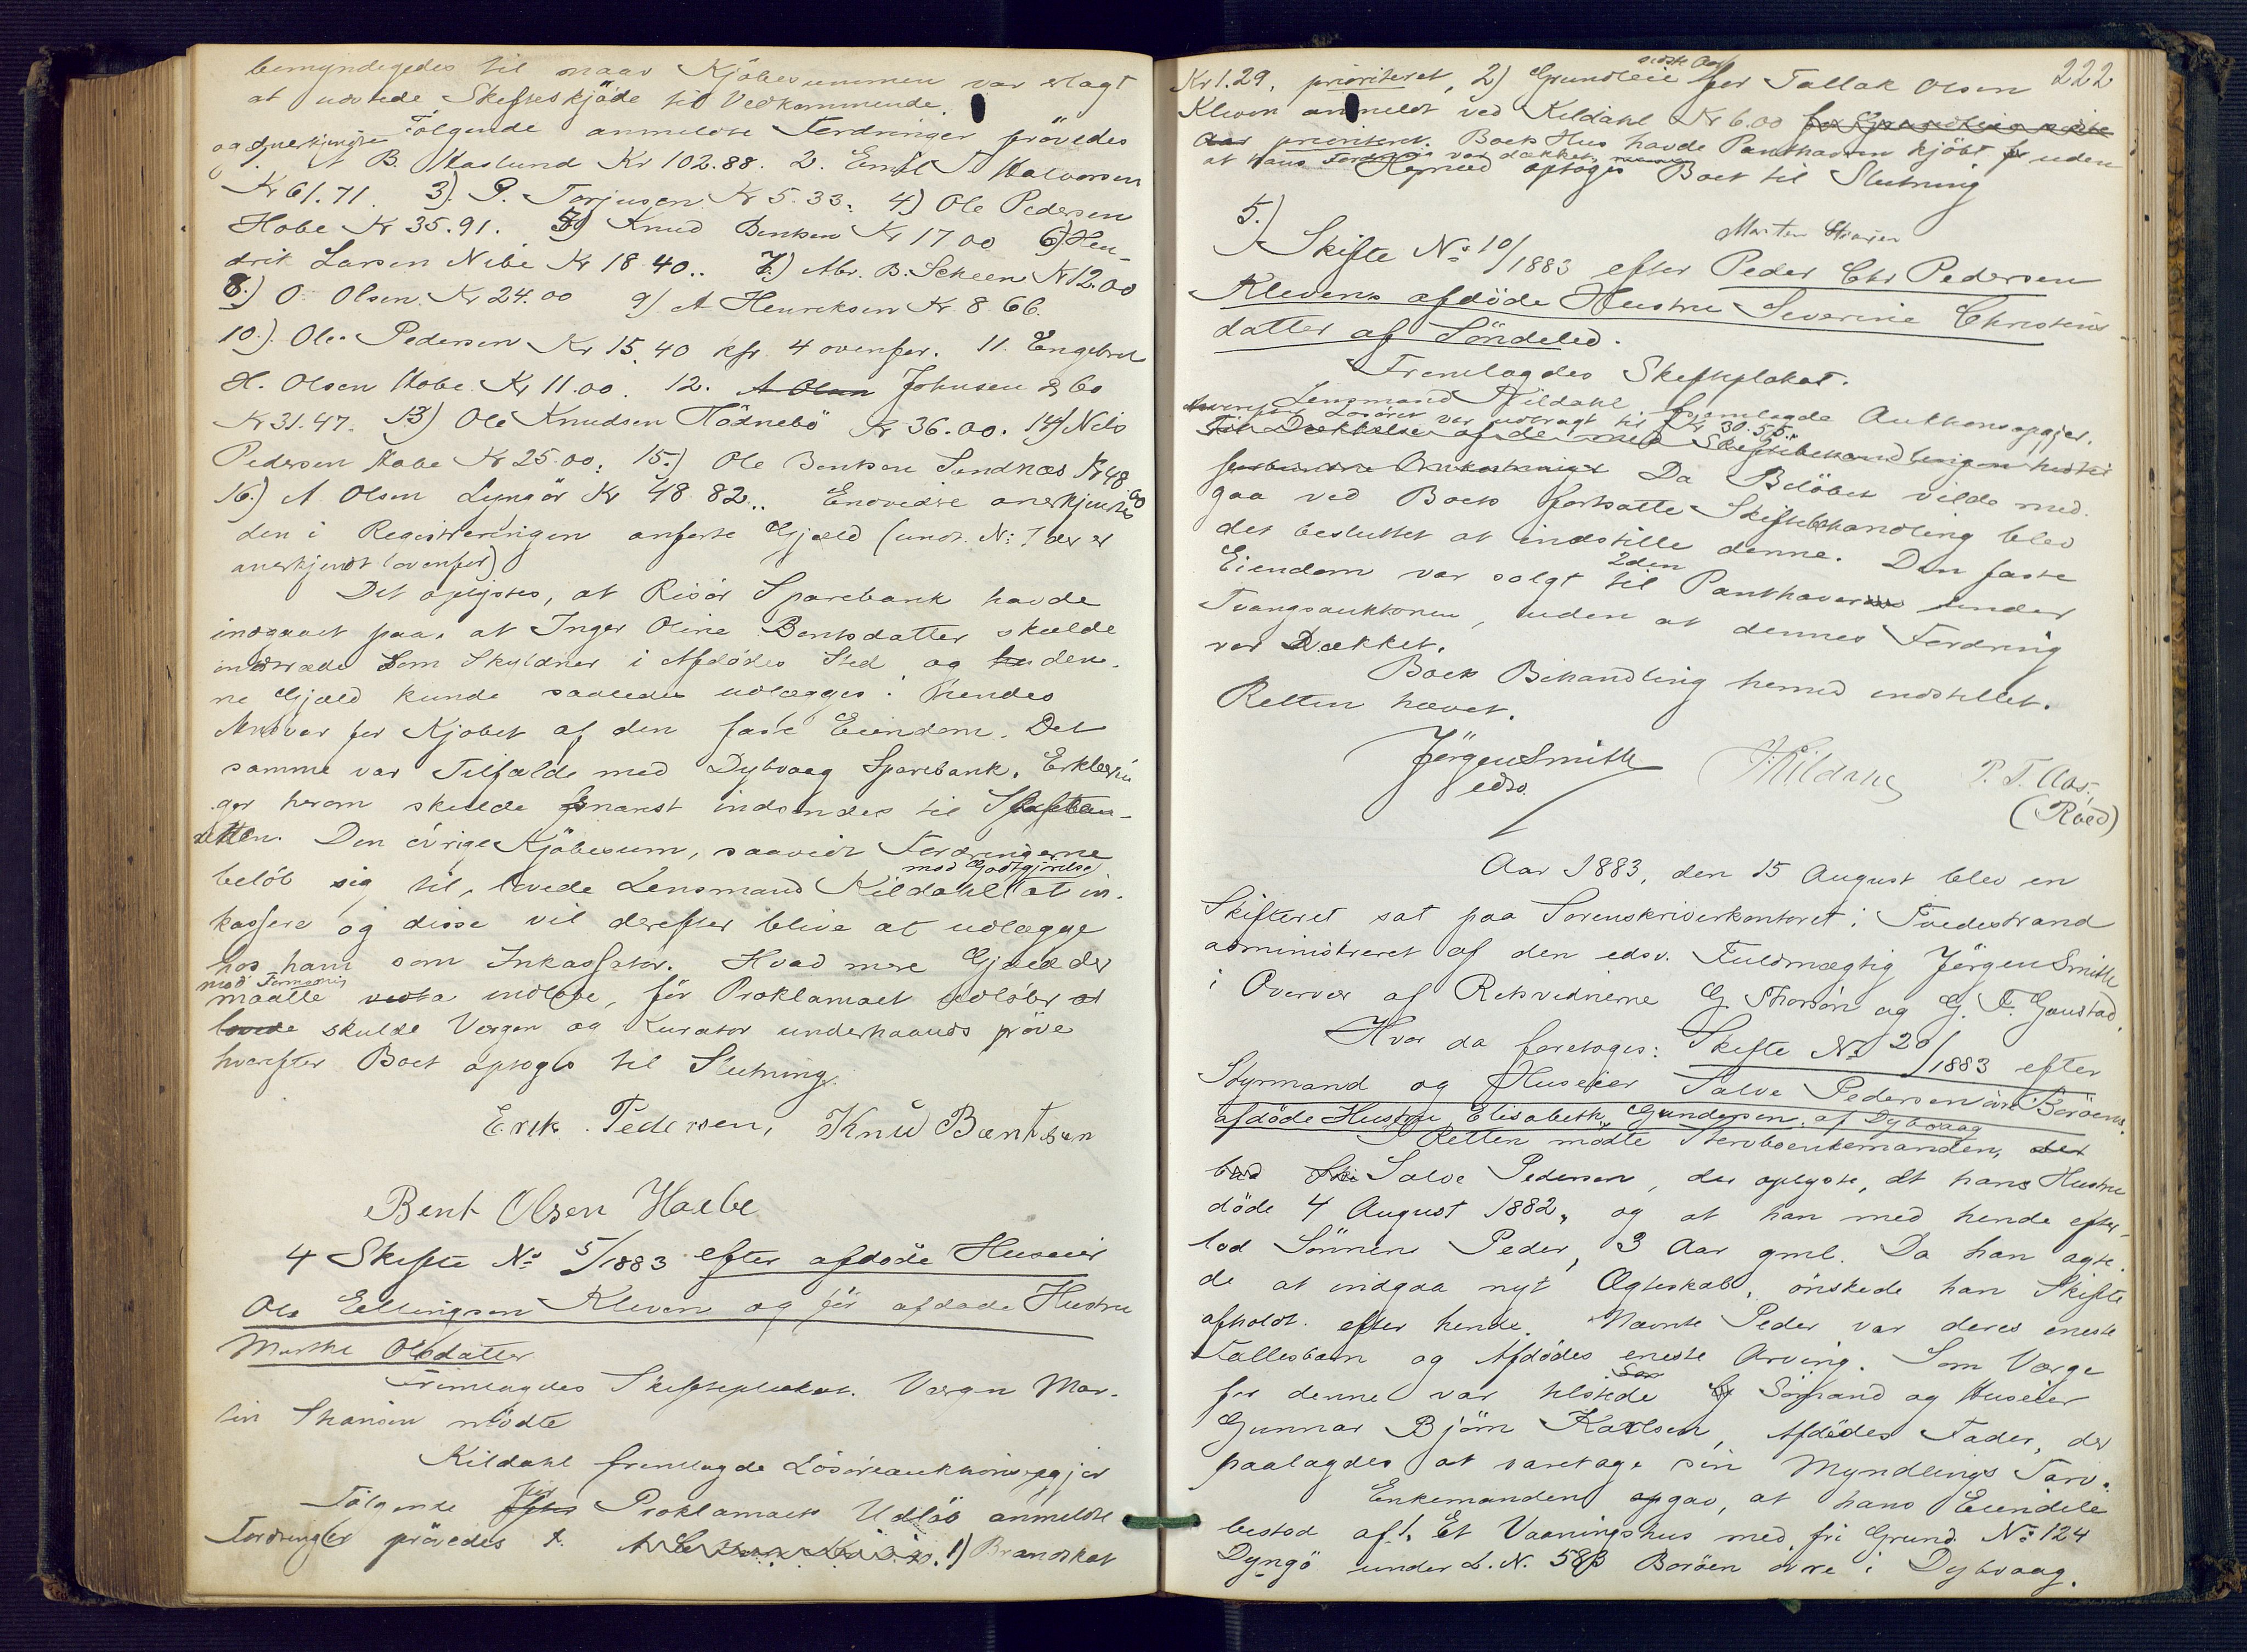 bemyndigedes til naar Kjöbesummen var erlagt
at udstede Skifteskjöde til Vedkommende.
Følgende anmeldte Fordringer prövedes
og anerkjendtes 1 B. Haslund Kr 102.88. 2. Emil T Halvorsen
Kr 61.71. 3). P. Torjusen Kr 5.33. 4) Ole Pedersen
Hobe Kr 35.91. 5) Knud Bentsen Kr 17 00 6) Hen-
drik Larsen Nibe Kr 18 40.. 7.) Abr. B. Scheen Kr 12.00
8.) O. Olsen Kr 24.00 9) A Henriksen Kr. 8 66.
10.). Ole Pedersen Kr 15.40 kfr. 4 ovenfor. 11. Engebret
H. Olsen Hobe Kr 11.00. 12. A Olsen Johnsen & Co
Kr 31.47. 13) Ole Knudsen Tödnebö Kr 36.00. 14) Nils
Pedersen Hobe Kr 25.00. 15.) Ole Bentsen Sundnæs Kr 48 60
16.) A Olsen Lyngör Kr 48 82.. Endvidre anerkjendtes
den i Registreringen anførte Gjæld (undt. N: 7 der er
anerkjendt ovenfor)
Det oplystes, at Risör Sparebank havde
indgaaet paa, at Inger Oline Bentsdatter skulde
indtræde som Skyldner i Afdödes Sted og den-
ne Gjæld kunde saaledes udlægges i hendes
Ansvar for Kjöbet af den faste Eiendom. Det
samme var Tilfælde med Dybvaag Sparebank. Erklærin
ger herom skulde snarest indsendes til Skifte-
retten. Den övrige Kjöbesum, saavidt Fordringerne
mod Godtgjörelse
belöb sig til, lovede Lensmand Kildahl at in-
kassere og disse vil derefter blive at udlægge
hos ham som Inkassator. Hvad mere Gjæld der
med Formodning
maatte indlöbe, för Proklamaet udlöber at
lovede skulde Værgen og Kurator underhaands pröve
hvorefter Boet optoges til Slutning.
Erik Pedersen, Knud Bæntsen
Bent Olsen Haabe
4 Skifte No 5/1883 efter afdöde Huseier
Ole Ellingsen Kleven og för afdöde Hustru
Marthe Olsdatter
Fremlagdes Skifteplakat. Værgen Mor-
ten Thorsen mödte
Kildahl fremlagde Lösöreauktionsopgjör
Følgende för Proklamaets Udlöb anmeldte
Fordringer prövedes 1) Brandskat
222
sidste Aar
Kr 1.29, prioriteret, 2) Grundleie for Tallak Olsen
Kleven anmeldt ved Kildahl Kr 6.00 for Grundleie sidste
Aar prioriteret. Boets Hus havde Panthaveren kjöbt uden
at hans Fordring var dækket.
Hermed optoges Boet til Slutning
5.)
Skifte No 10/1883 efter Peder Chr Pedersen
Klevens afdöde Hustru Severine Christens
datter af Söndeled.
Fremlagdes Skifteplakat.
Lensmand Kildahl fremlagde Auktionsopgjör,
hvorefter Lösöret var udbragt til Kr 30.55.
Til Dækkelse af de med Skiftebehandlingen
forbundne Omkostninger Da Belöbet vilde med-
gaa ved Boets fortsatte Skiftebehandling blev
det besluttet at indstille denne. Den faste
2den
Eiendom var solgt til Panthaver under
Tvangsauktionen, uden at dennes Fordring
var Dækket.
Boets Behandling hermed indstillet.
Retten hævet.
Jörgen Smith
edsv.
Kildahl
P. T. Aas,
(Röed)
Aar 1883, den 15 August blev en
Skifteret sat paa Sorenskriverkontoret i Tvedestrand
administreret af den edsv. Fuldmægtig Jörgen Smith
i Overvær af Retsvidnerne G Thorsön og G. F. Gaustad.
Hvor da foretoges: Skifte No 20/1883 efter
Styrmand og Huseier Salve Pedersen övre Boröens
afdöde Hustru Elisabeth Gundersen af Dybvaag
I Retten mödte Stervboenkemanden,
Salve Pedersen, der oplyste, at hans Hustru
döde 4 August 1882, og at han med hende efter-
lod Sönnen Peder, 3 Aar gml. Da han agte-
de at indgaa nyt Ægteskab, önskede han Skifte
afholdt efter hende. Nævnte Peder var deres eneste
Fællesbarn og Afdödes eneste Arving. Som Værge
for denne var tilstede Sömand og Huseier
Gunnar Björn Karlsen, Afdödes Fader, der
paalagdes at varetage sin Myndlings Tarv.
Enkemanden opgav, at hans Eiendele
bestod af 1. Et Vaaningshus med fri Grund No 124
Dyngö under L. N. 58β Boröen övre i Dybvaag.